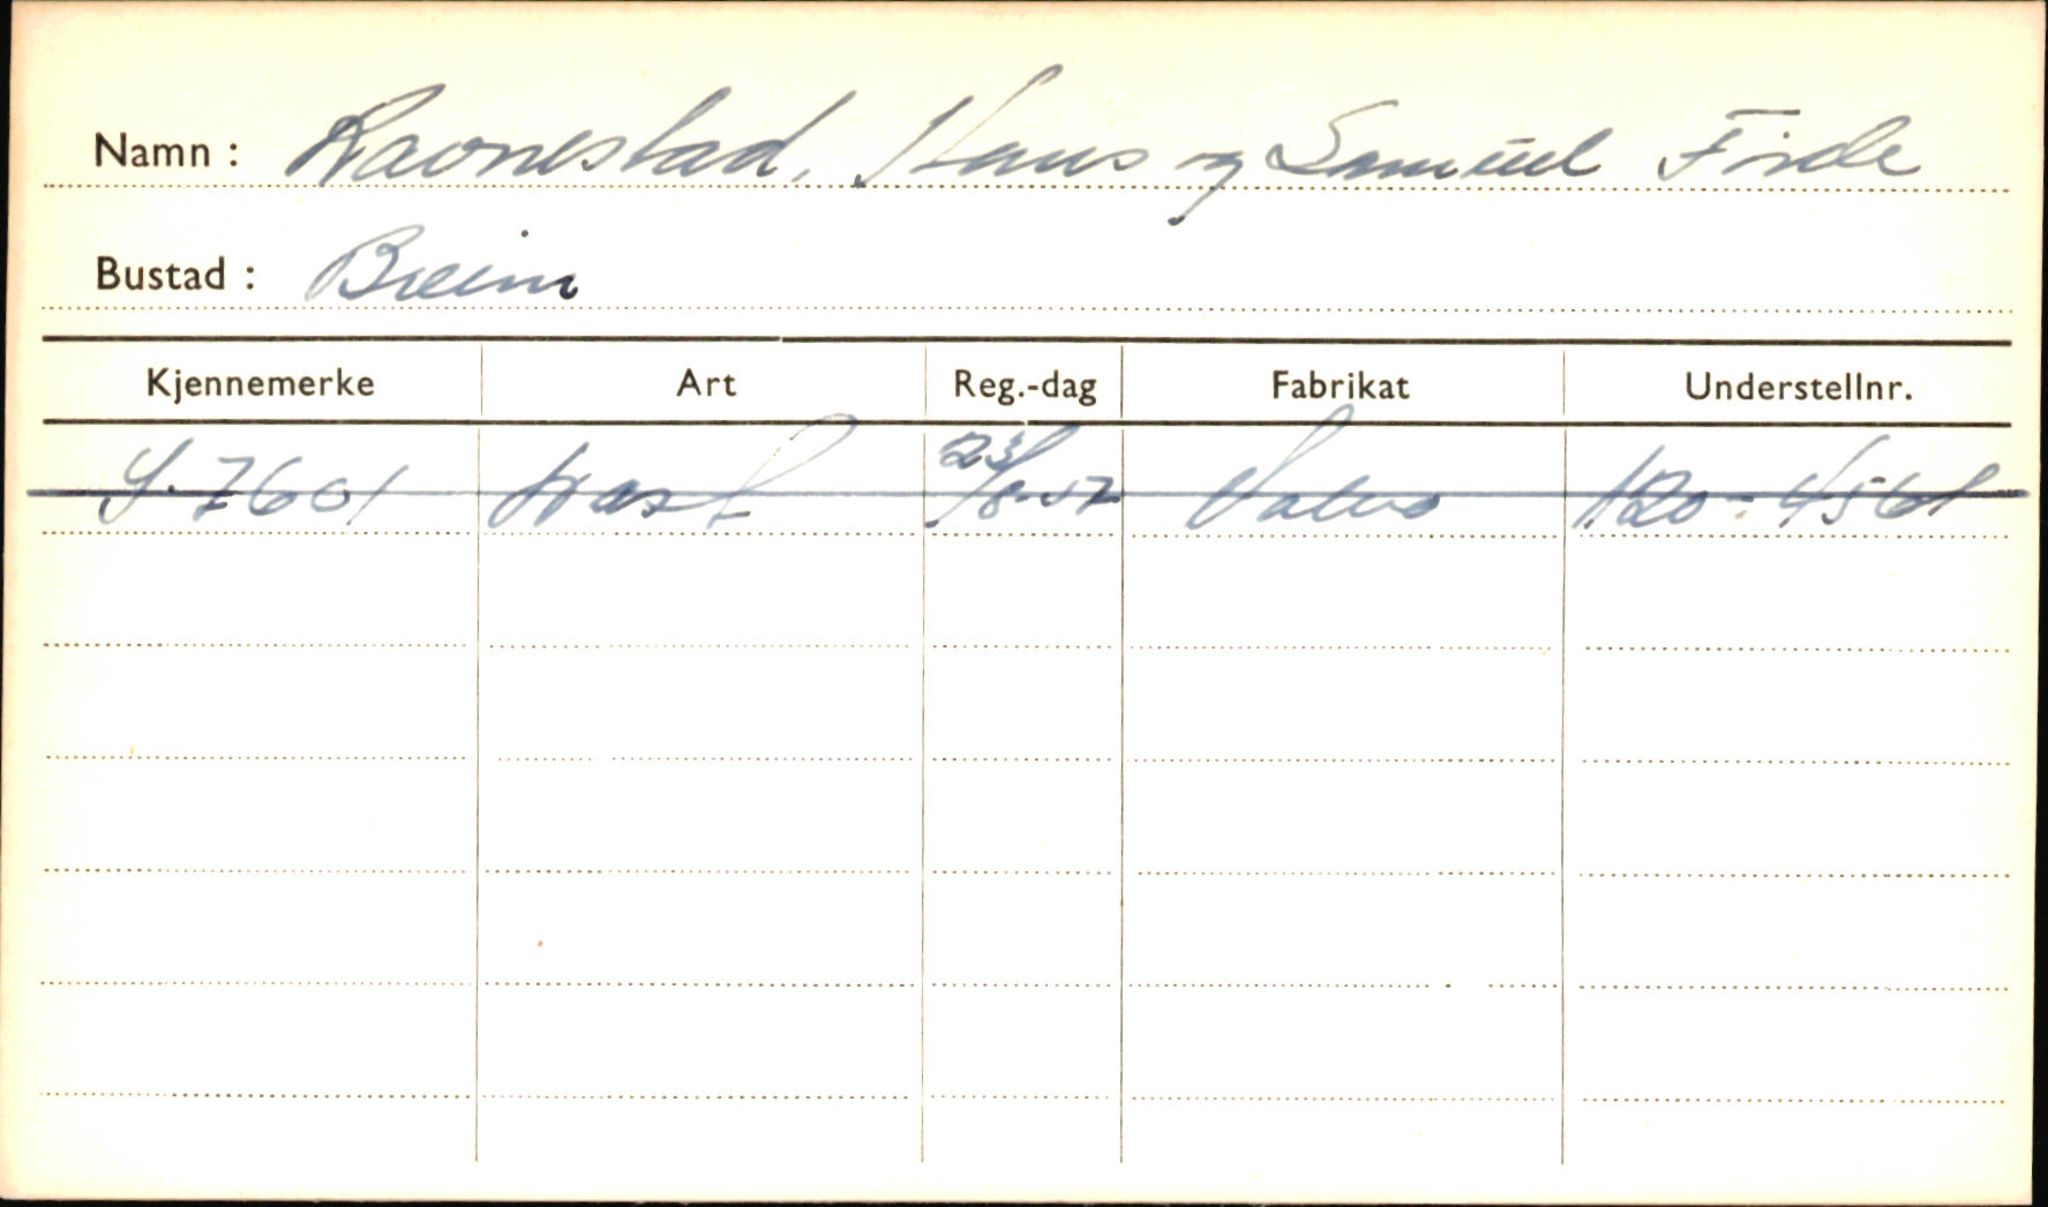 Namn : Ravnestad, Hans og Samuel Førde
Bustad : Breim
Kjennemerke Art Reg.-dag Fabrikat Understellnr.
S-7601 23/8-57 Volvo 120-4561